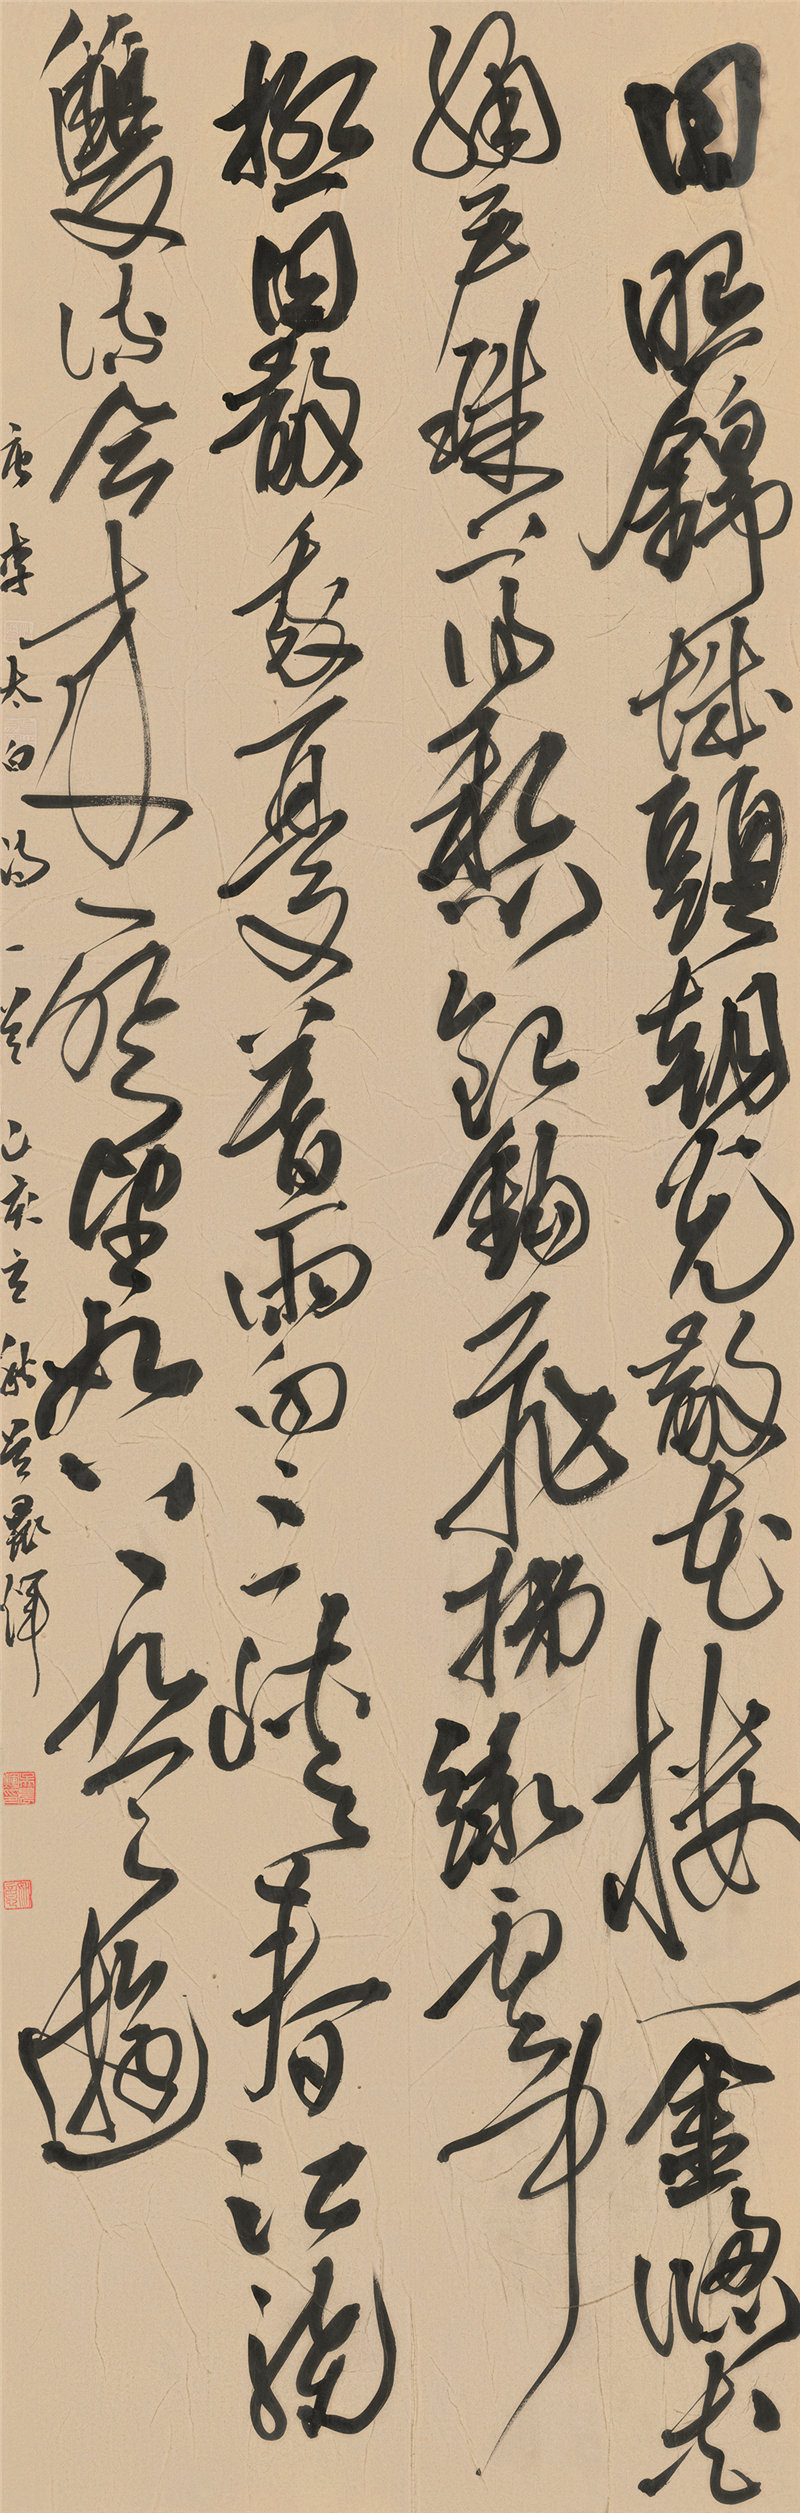 日照錦城頭朝光散花樓金窗夾
繡戶珠箔懸銀鉤飛梯綠雲中
極目散我憂暮雨向三峽春江繞
雙流今來一登望如上九天遊
唐李太白詩一首己亥立秋